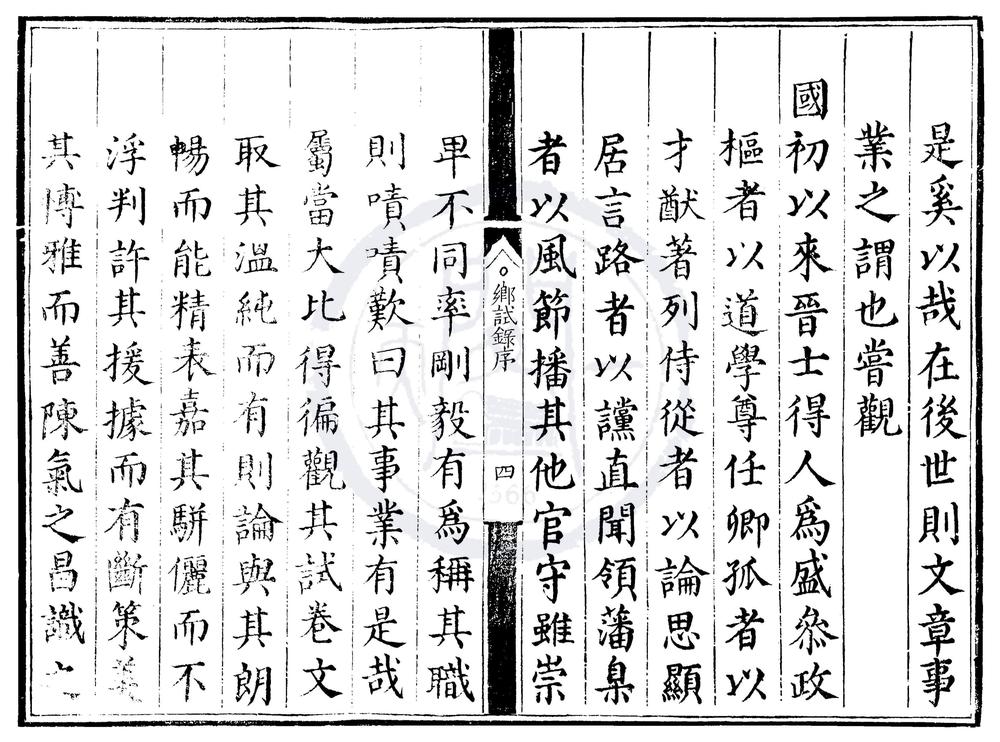 是奚以哉在後世則文章事
業之謂也嘗觀
國初以來晉士得人爲盛叅政
樞者以道學尊任卿孤者以
才猷著列侍從者以論思顯
居言路者以讜直聞領藩臬
者以風節播其他官守雖崇
鄉試錄序
四
卑不同率剛毅有爲稱其職
則嘖嘖歎曰其事業有是哉
屬當大比得徧觀其試卷文
取其溫純而有則論與其朗
暢而能精表嘉其駢儷而不
浮判許其援據而有斷策美
其博雅而善陳氣之昌識之